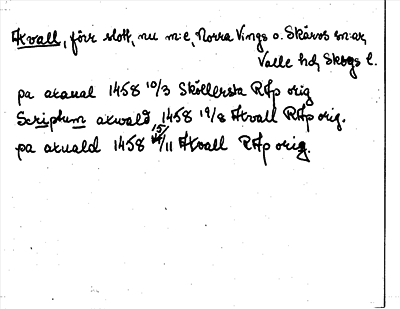 Axvall, förr slott, nu m:e, Norra Vings o. Skärvs sn:ar,
Valle hd, Skbgs l.
pa axaual 1458 10/3 Sköllersta RAp orig
Scriptum axwald 1458 19/8 Axvall RAp orig.
pa axuald 1458 15/11 Axvall RAp orig.